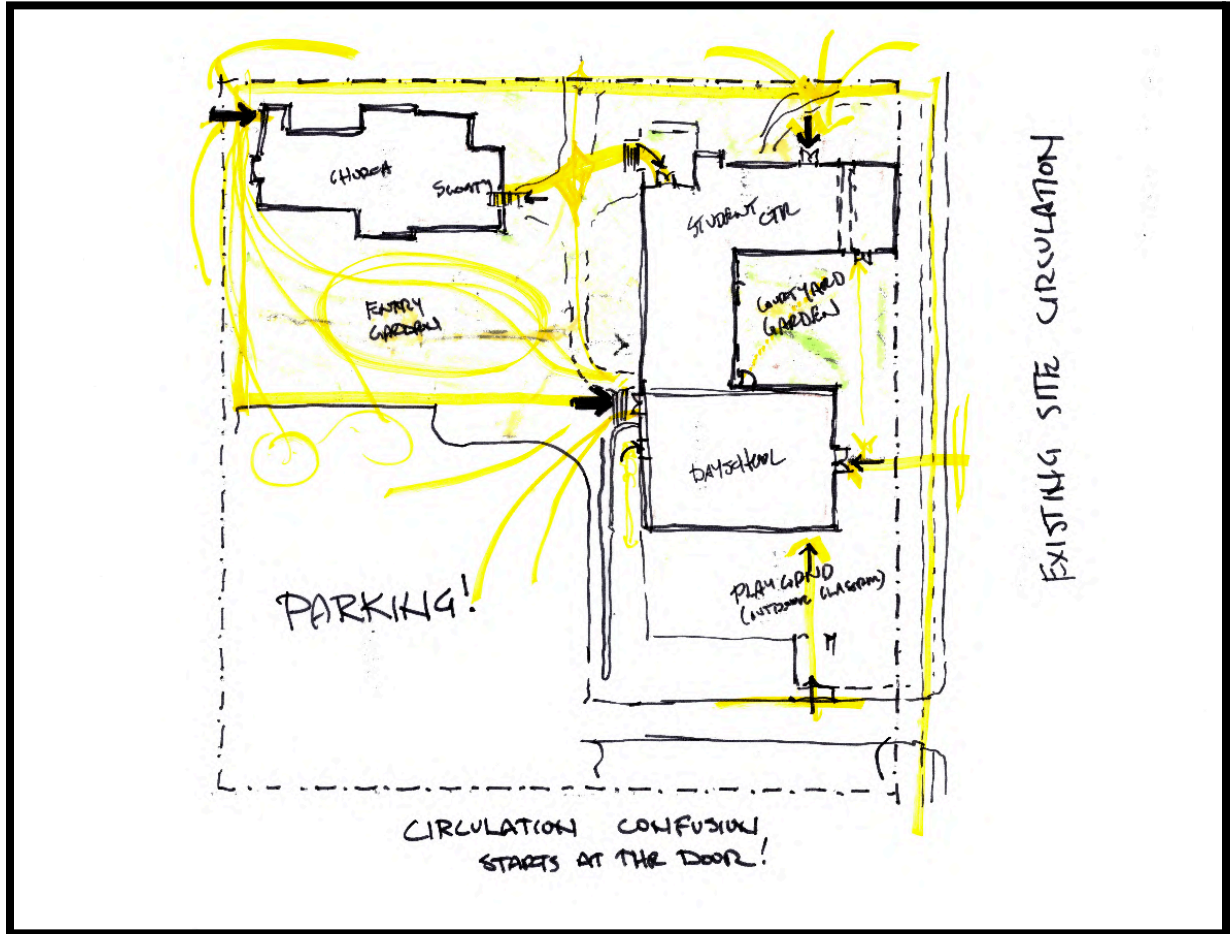 CHURCH
STUDENT
CTR
ENTRY
GARDEN
COURTYARD
GARDEN
DAYSCHOOL
PLAYGRND
(OUTDOOR CLASSRM)
PARKING!
EXISTING SITE CIRCULATION
CIRCULATION CONFUSION
STARTS AT THE DOOR!